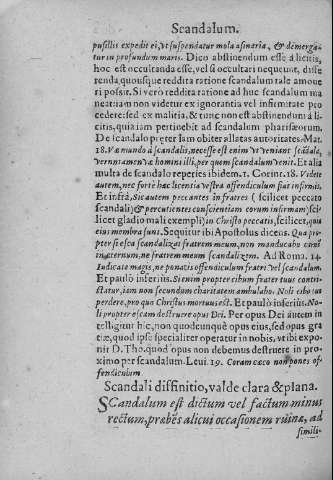 Scandalum.
pusillis expedit ei, vt suspendatur mola asinaria, & demerga-
tur in profundum maris. Dico abstinendum esse à licitis,
hoc est occultanda esse, vel si occultari nequeunt, diffe
renda, quousque reddita ratione scandalum tale amoue
ri possit. Si verò reddita ratione ad huc scandalum ma
neat: iam non videtur ex ignorantia vel infirmitate pro
cedere: sed ex malitia, & tunc non est abstinendum à li-
citis, quia iam pertinebit ad scandalum pharisæorum.
De scandalo præter iam obiter allatas autoritates. Mat.
18. Væ mundo à scandalis, necesse est enim vt veniant scādala,
verūtamen væ homini illi, per quem scandalum venit. Et alia
multa de scandalo reperies ibidem. 1. Corint. 18. Videte
autem, nec fortè hæc licentia vestra offendiculum fiat infirmis.
Et infrà, Sic autem peccantes in fratres (scilicet peccato
scandali) & percutientes conscientiam eorum infirmam (sci-
licet gladio mali exempli) in Christo peccatis, scilicet, qui
eius membra sunt. Sequitur ibi Apostolus dicens. Qua prop-
ter si esca scandalizat fratrem meum, non manducabo carnē
in æternum, ne fratrem meum scandalizem. Ad Roma. 14.
Iudicate magis, ne ponatis offendiculum fratri vel scandalum.
Et paulò inferiùs. Si enim propter cibum frater tuus contri-
statur, iam non secundum charitatem ambulas. Noli cibo tuo
perdere, pro quo Christus mortuus est. Et paulò inferiùs. No-
li propter escam destruere opus Dei. Per opus Dei autem in
telligitur hic, non quodcunquè opus eius, sed opus gra
tiæ, quod ipse specialiter operatur in nobis, vt ibi expo-
nit D. Tho. quod opus non debemus destruere in pro-
ximo per scandalum. Leui. 19. Coram cæco non pones of-
fendiculum.
Scandali diffinitio, valde clara & plana.
SCandalum est dictum vel factum minus
rectum, præbēs alicui occasionem ruinæ, ad
simili-